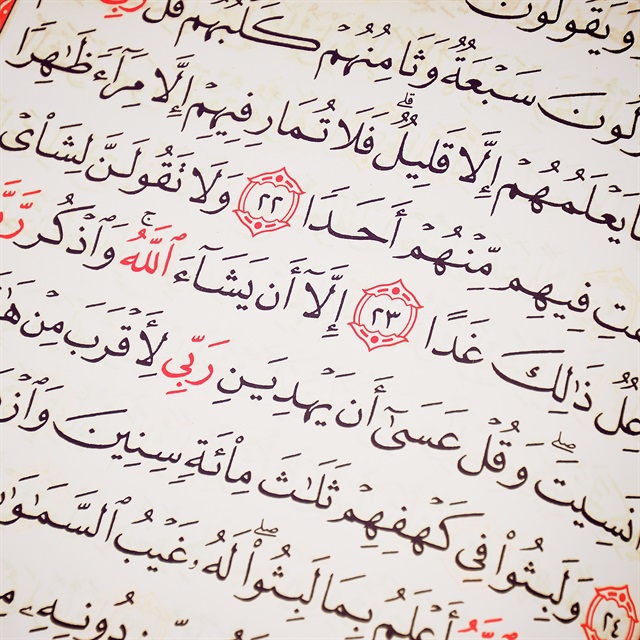 وَيَقُولُونَ
لُونَ سَبْعَةٌ وَثَامِنُهُمْ كَلْبُهُمْ قُل رَّبِّ
يَعْلَمُهُمْ إِلَّا قَلِيلٌ ۗ فَلَا تُمَارِ فِيهِمْ إِلَّا مِرَآءً ظَٰهِرًا
تِ فِيهِم مِّنْهُمْ أَحَدًا ٢٢ وَلَا تَقُولَنَّ لِشَا۟ىْ
عِلٌ ذَٰلِكَ غَدًا ٢٣ إِلَّآ أَن يَشَآءَ ٱللَّهُ ۚ وَٱذْكُر رَّبَّ
نَسِيتَ ۖ وَقُلْ عَسَىٰٓ أَن يَهْدِيَنِ رَبِّى لِأَقْرَبَ مِنْ هَٰ
٢٤ وَلَبِثُوا۟ فِى كَهْفِهِمْ ثَلَٰثَ مِا۟ئَةٍ سِنِينَ وَٱزْ
أَعْلَمُ بِمَا لَبِثُوا۟ ۖ لَهُۥ غَيْبُ ٱلسَّمَٰوَٰ
دُونِهِۦ مِ